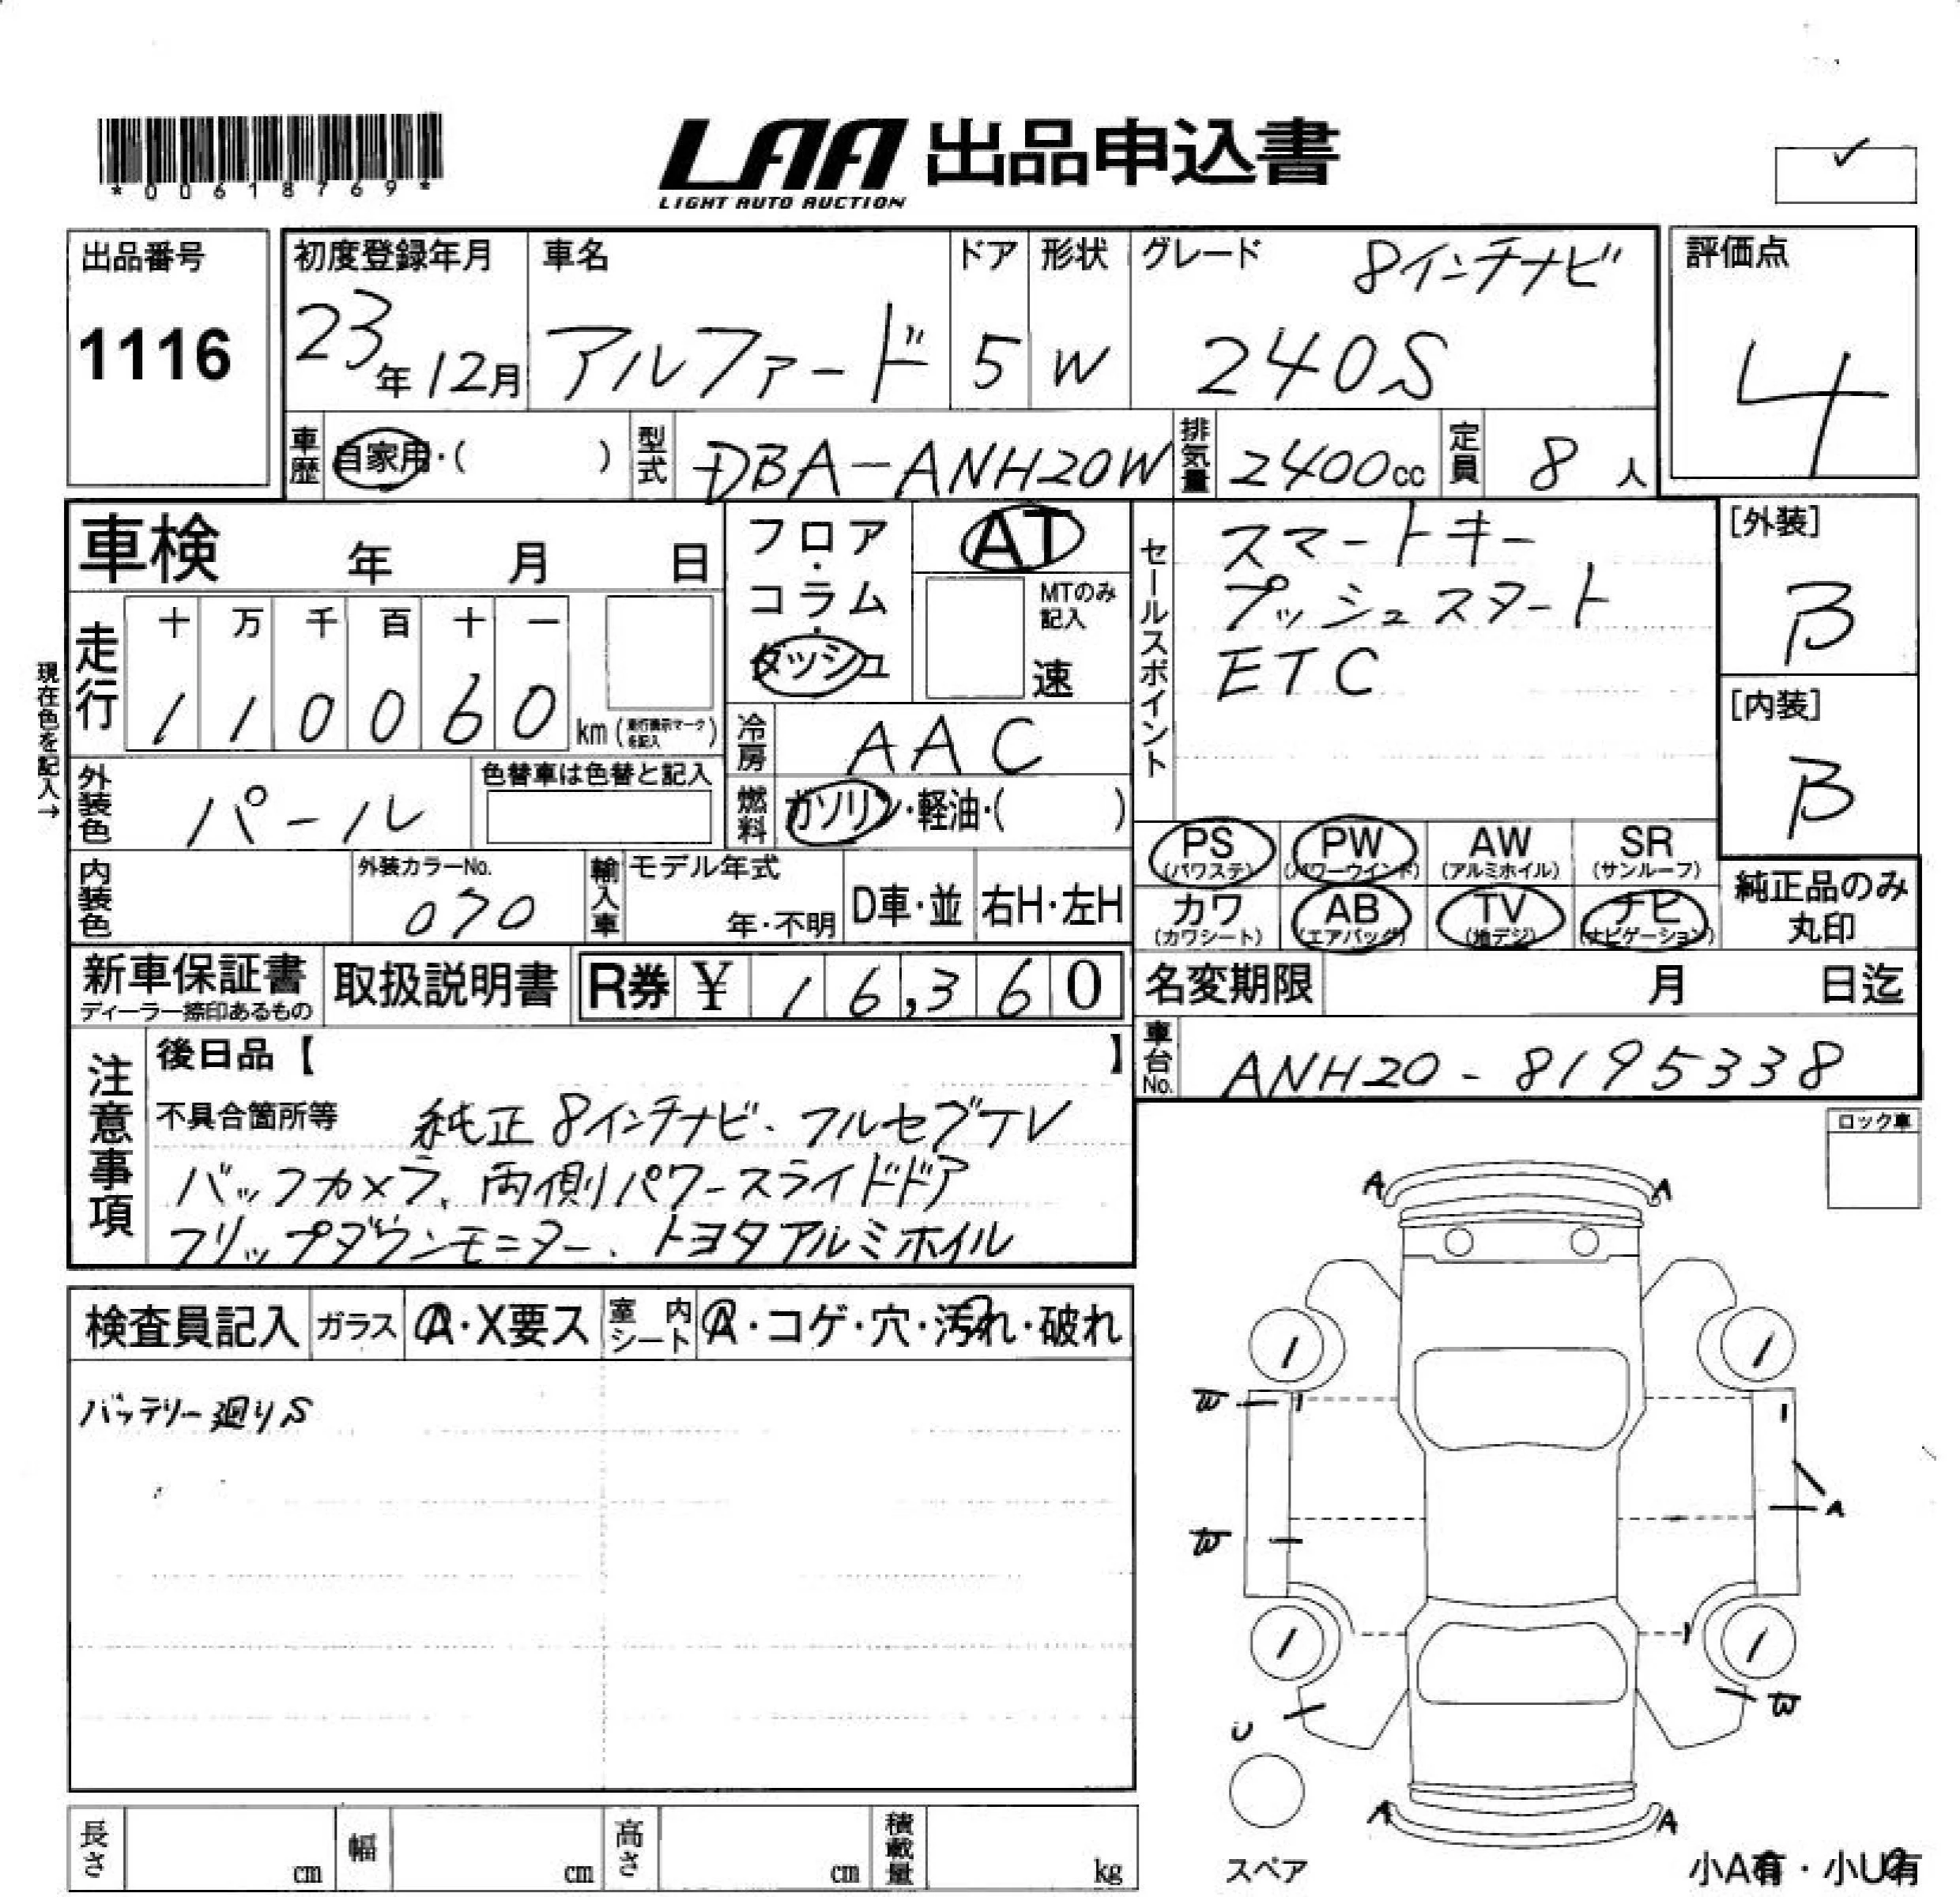 *00618769*
LAA 出品申込書
LIGHT AUTO AUCTION
✓
出品番号
1116
初度登録年月
23年12月
車名
アルファード
ドア
5
形状
W
グレード
8インチナビ
240S
評価点
4
車歴 自家用・( )
型式 DBA-ANH20W
排気量 2400cc
定員 8人
車検 年 月 日
フロア・コラム・ダッシュ
AT
MTのみ記入
速
セールスポイント
スマートキー
プッシュスタート
ETC
[外装]
B
[内装]
B
現在色を記入→
走行
十 万 千 百 十 一
1 1 0 0 6 0 km (走行表示マークを記入)
冷房 AAC
外装色 パール
色替車は色替と記入
燃料 ガソリン・軽油・( )
PS (パワステ)
PW (パワーウインド)
AW (アルミホイル)
SR (サンルーフ)
カワ (カワシート)
AB (エアバッグ)
TV (地デジ)
ナビ (ナビゲーション)
純正品のみ
丸印
内装色
外装カラーNo.
070
輸入車
モデル年式
年・不明
D車・並
右H・左H
新車保証書
ディーラー捺印あるもの
取扱説明書
R券 ¥ 16,360
名変期限 月 日迄
車台No. ANH20-8195338
注意事項
後日品【 】
不具合箇所等 純正8インチナビ、フルセグTV
バックカメラ、両側パワースライドドア
フリップダウンモニター、トヨタアルミホイル
ロック車
検査員記入
ガラス A・X要ス
室内シート A・コゲ・穴・汚れ・破れ
バッテリー廻りS
A A
1 1
W 1 1
A
W
1 1 1
U W
A A
スペア
小A有・小U有
長さ cm
幅 cm
高さ cm
積載量 kg